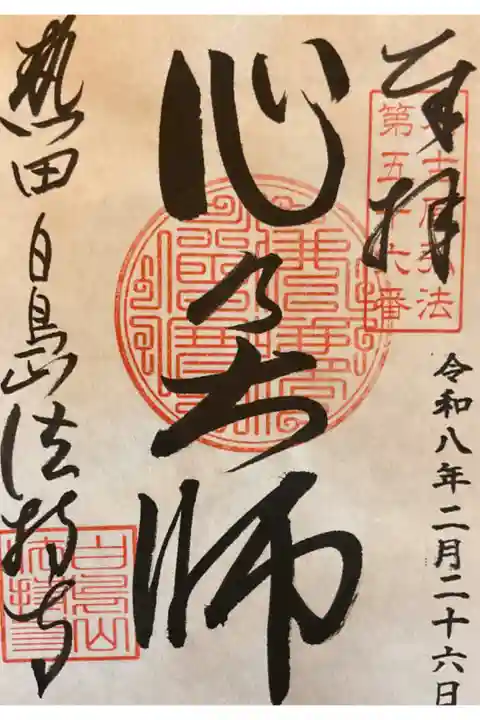 奉拝
弘法
第五十六番
令和八年二月二十六日
心乃大師
熱田白鳥山法持寺
白鳥山